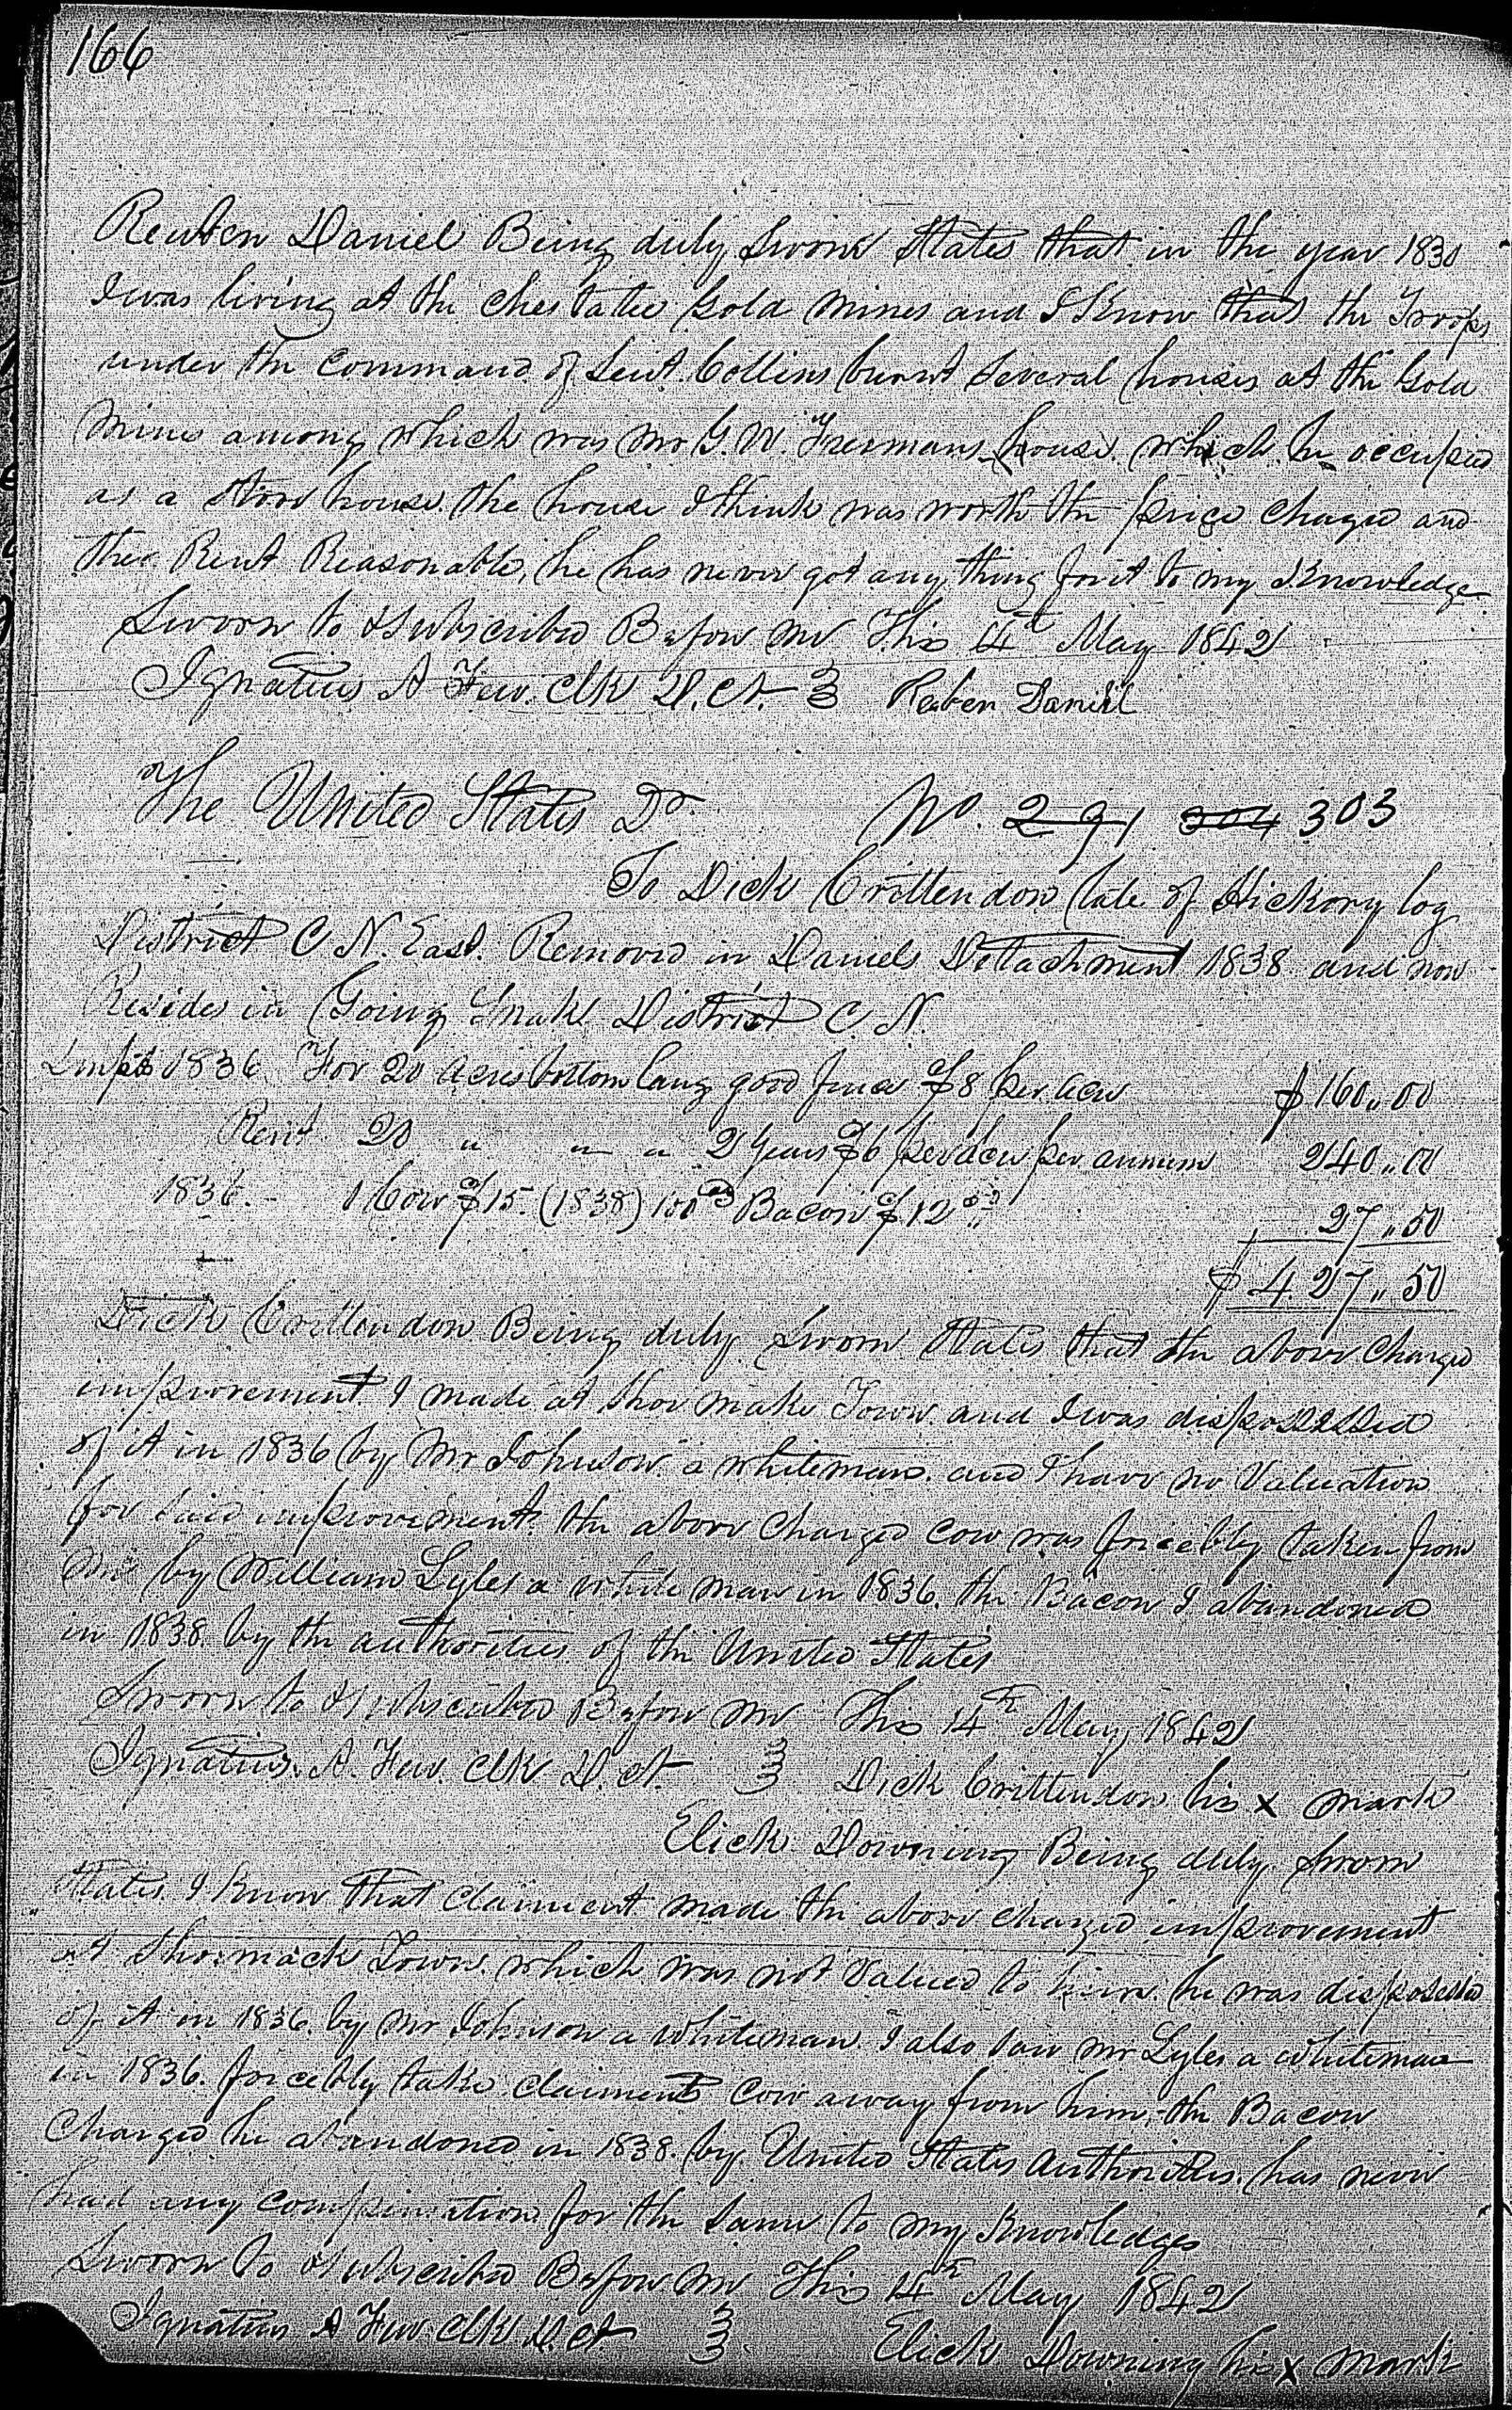 166
Reuben Daniel Being duly Sworn States that in the year 1830
I was living at the Chestatee Gold Mines and I Know that the Troops
under the Command of Leut. Collins burnt several houses at the Gold
Mines among which was Mr G. W. Freemans house which he occupied
as a Store house. the house I think was worth the price charged and
the Rent Reasonable, he has never got any thing for it to my Knowledge
Sworn to & Subscribed Before me This 14th May 1842
Ignatius A Few. Clk D. Ct. } Reuben Daniel
The United States Dr. No. 291 304 303
To Dick Crittendon late of Hickory log
District C N. East. Removed in Daniels Detachment 1838 and now
Resides in Going Snake District C N.
1836 For 20 acres bottom land good fence $8 per acre $160,,00
Rent 20 " " " 2 Years $6 per acre per annum 240,,00
1836. 1 Cow $15. (1838) 100 lbs Bacon $12.50 27,,50
$427,,50
Dick Crittendon Being duly Sworn States that the above Charged
improvement I made at Shoe make Town and I was dispossessed
of it in 1836 by Mr Johnson a whiteman. and I have no Valuation
for said improvement. the above Charged Cow was forcebly taken from
me by William Lyles a white man in 1836. the Bacon I abandoned
in 1838. by the authorities of the United States
Sworn to & Subscribed Before me This 14th May 1842
Ignatius. A. Few. Clk D. Ct } Dick Crittendon his x mark
Elick Downing Being duly Sworn
States I Know that Claimeent made the above charged improvement
at Shoemack Town which was not Valued to him he was disposessed
of it in 1836. by Mr Johnson a whiteman. I also saw Mr Lyles a whiteman
in 1836. forcebly take Claiments Cow away from him, the Bacon
Charged he abandoned in 1838. by United States Authorities. has never
had any compensation for the same to my Knowledge
Sworn to & Subscribed Before me This 14th May 1842
Ignatius A Few. Clk D. Ct } Elick Downing his x mark